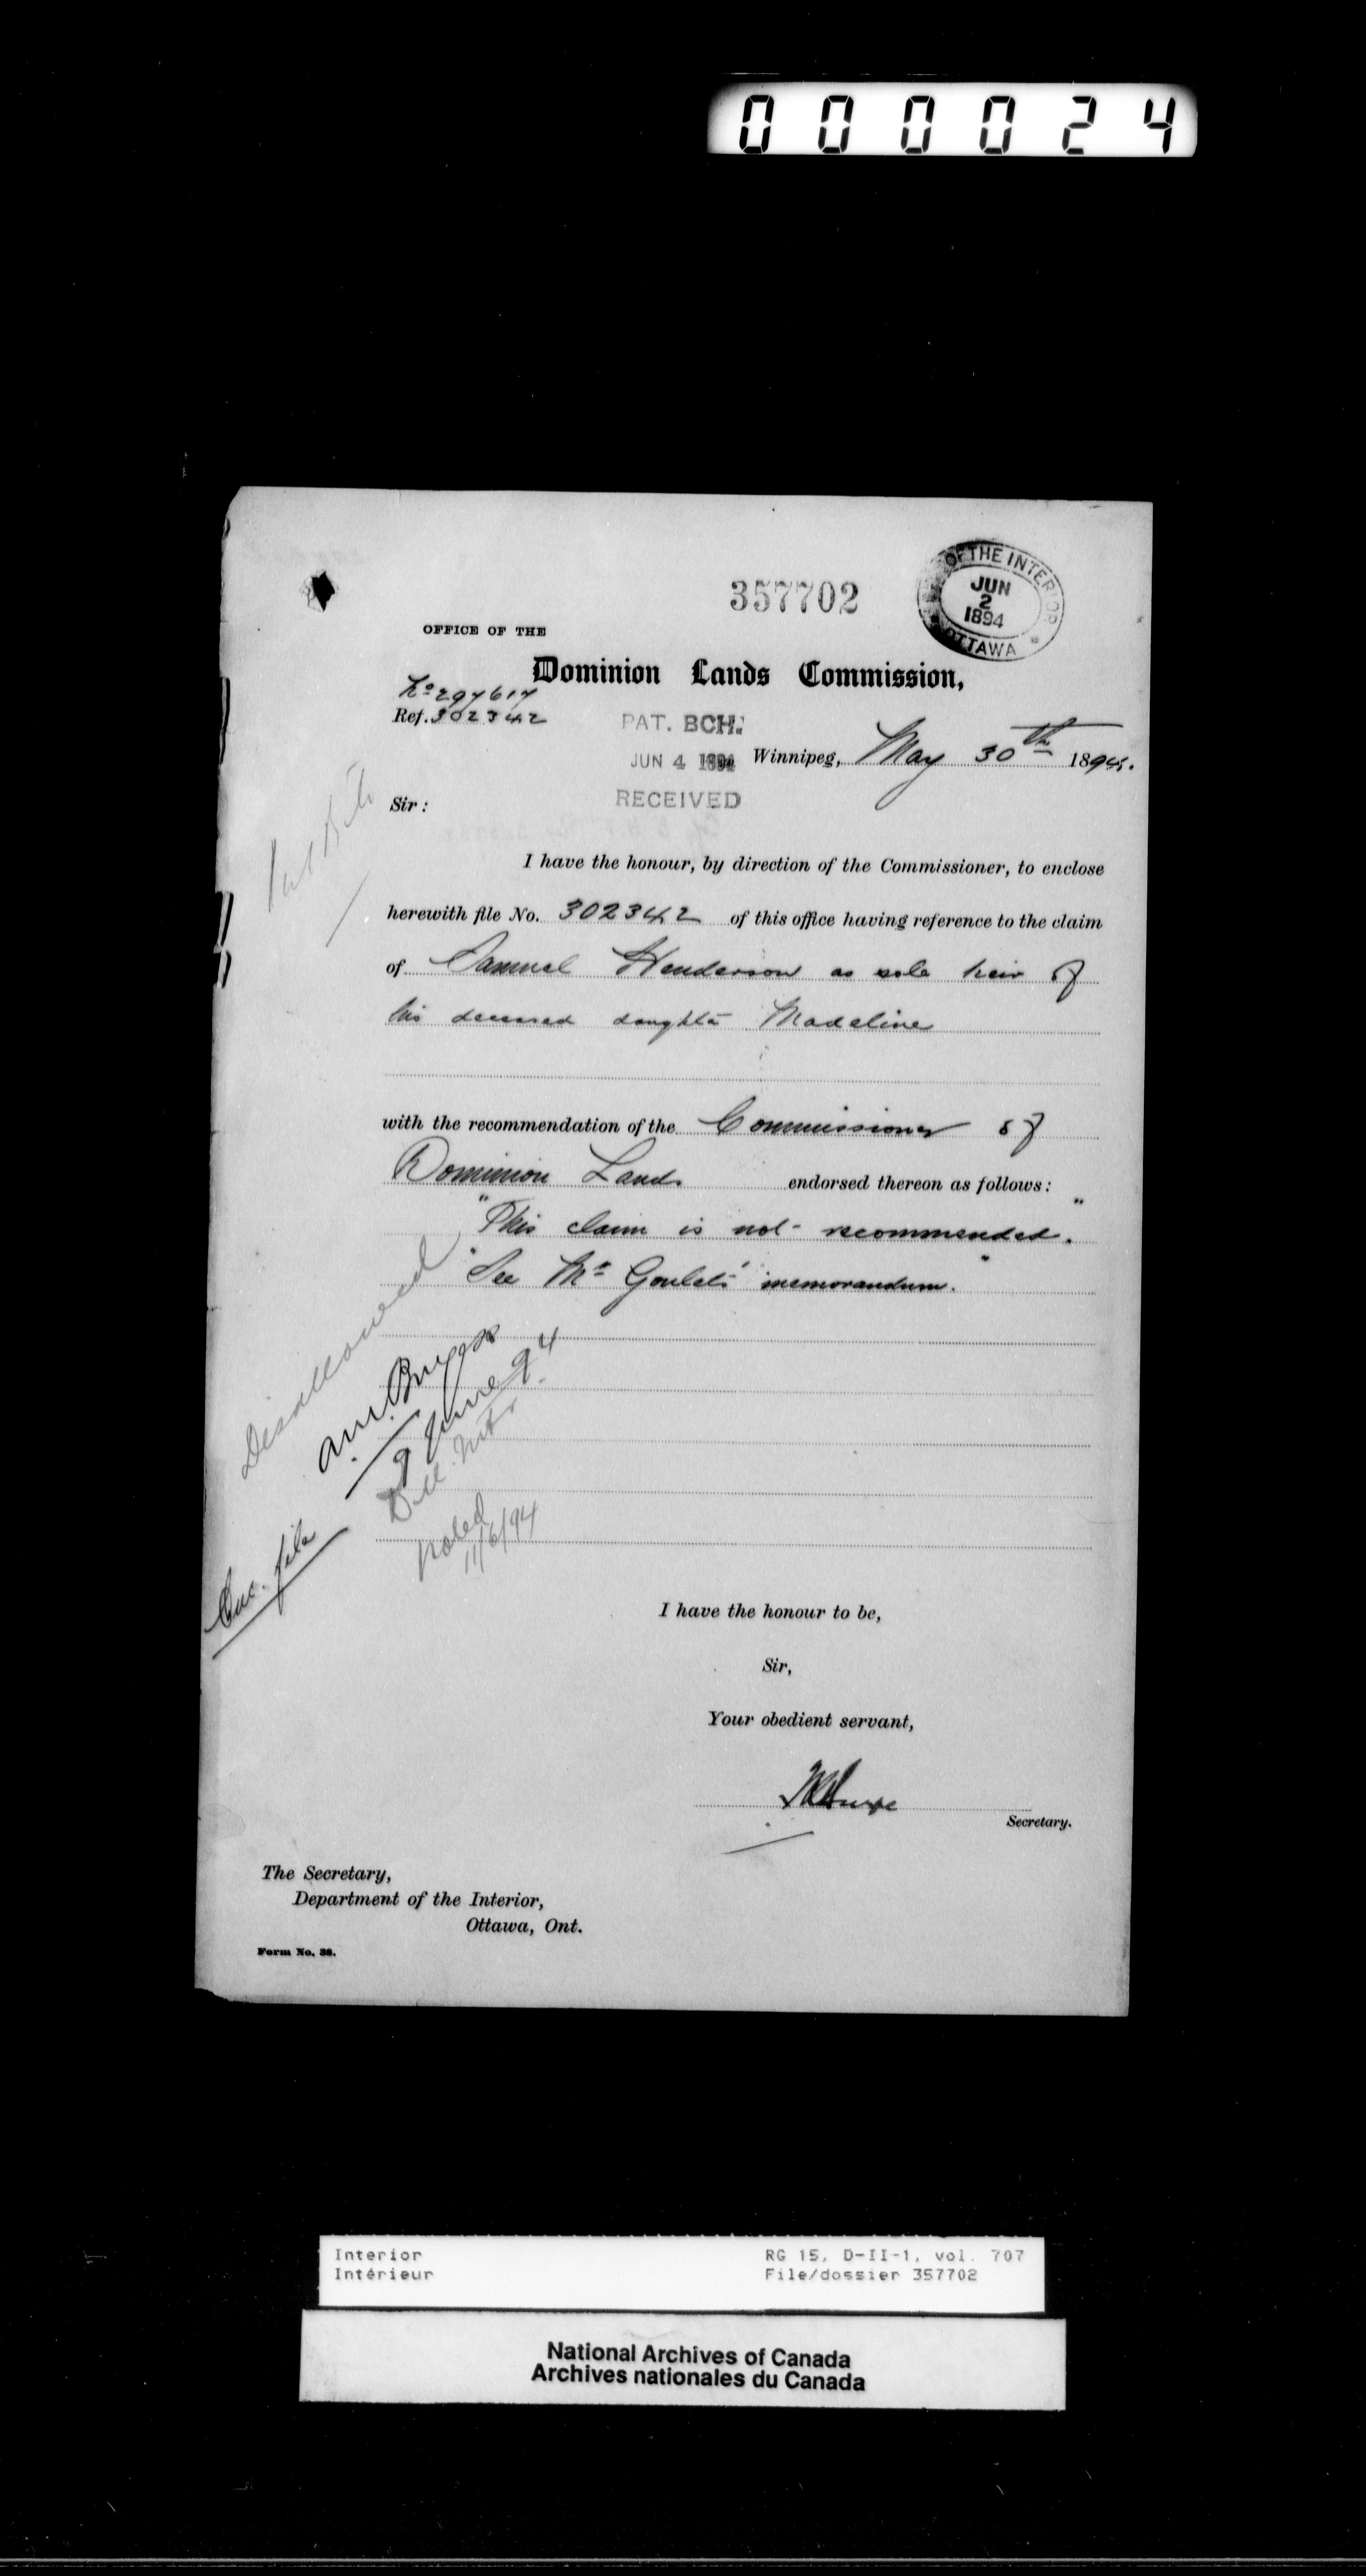 000024
357702
OF THE INTERIOR
JUN
2
1894
OTTAWA
OFFICE OF THE
Dominion Lands Commission,
No 297617
Ref. 302342
PAT. BCH.
JUN 4 1894
RECEIVED
Winnipeg, May 30th 1894.
Sir:
I have the honour, by direction of the Commissioner, to enclose
herewith file No. 302342 of this office having reference to the claim
of Samuel Henderson as sole heir of
his deceased daughter Madeline
with the recommendation of the Commissioner of
Dominion Lands endorsed thereon as follows:
"This claim is not recommended."
"See Mr Goulet's memorandum."
Disallowed
9 June 94
Noted
11/6/94
Enc. file
I have the honour to be,
Sir,
Your obedient servant,
Secretary.
The Secretary,
Department of the Interior,
Ottawa, Ont.
Form No. 38.
Interior
Intérieur
RG 15, D-II-1, vol. 707
File/dossier 357702
National Archives of Canada
Archives nationales du Canada